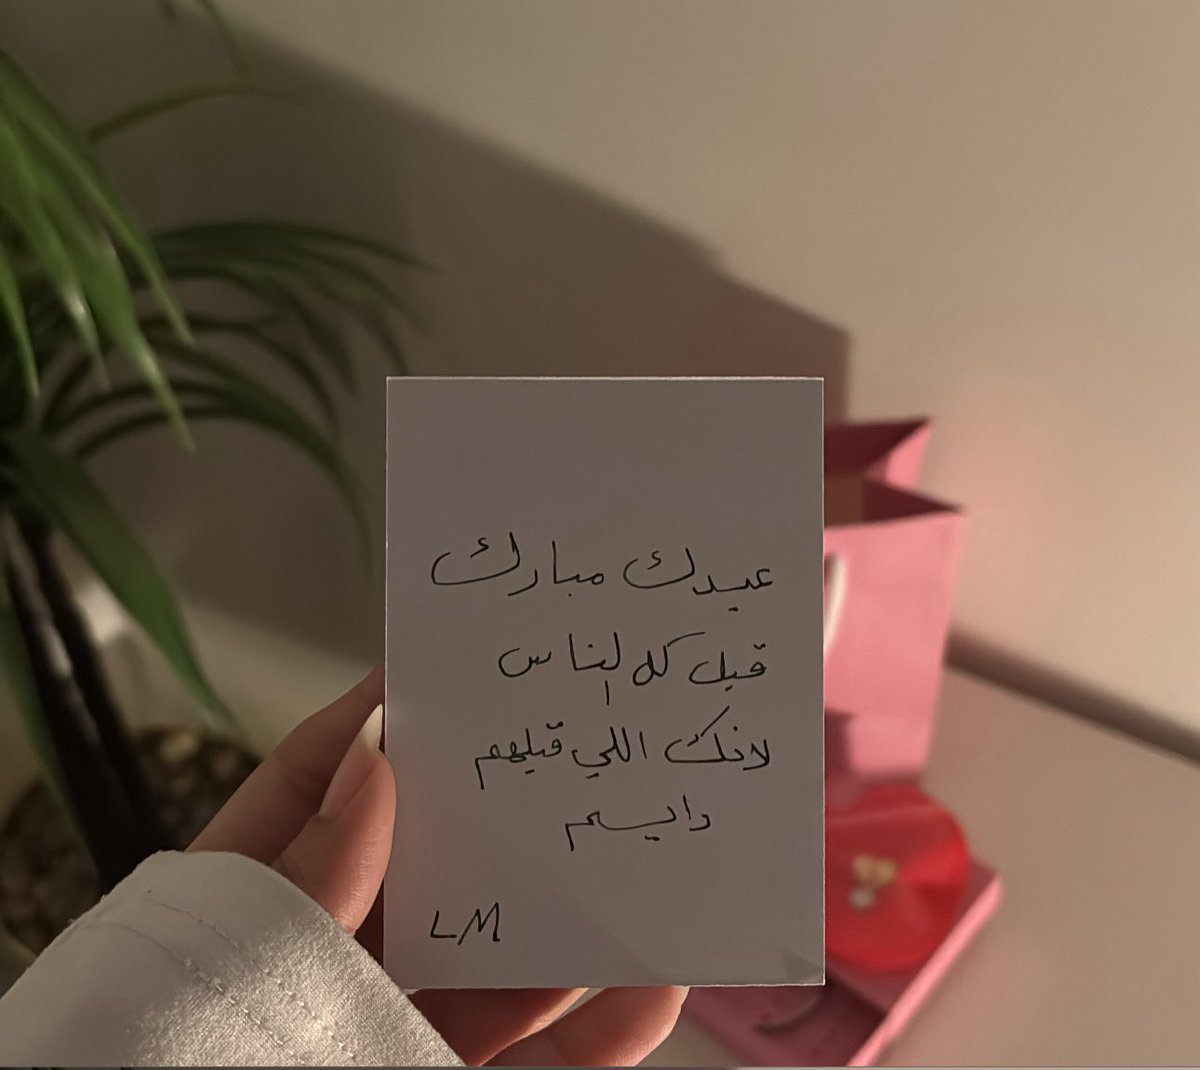 عيدك مبارك
قبل كل الناس
لانك اللي قبلهم
دايم
LM